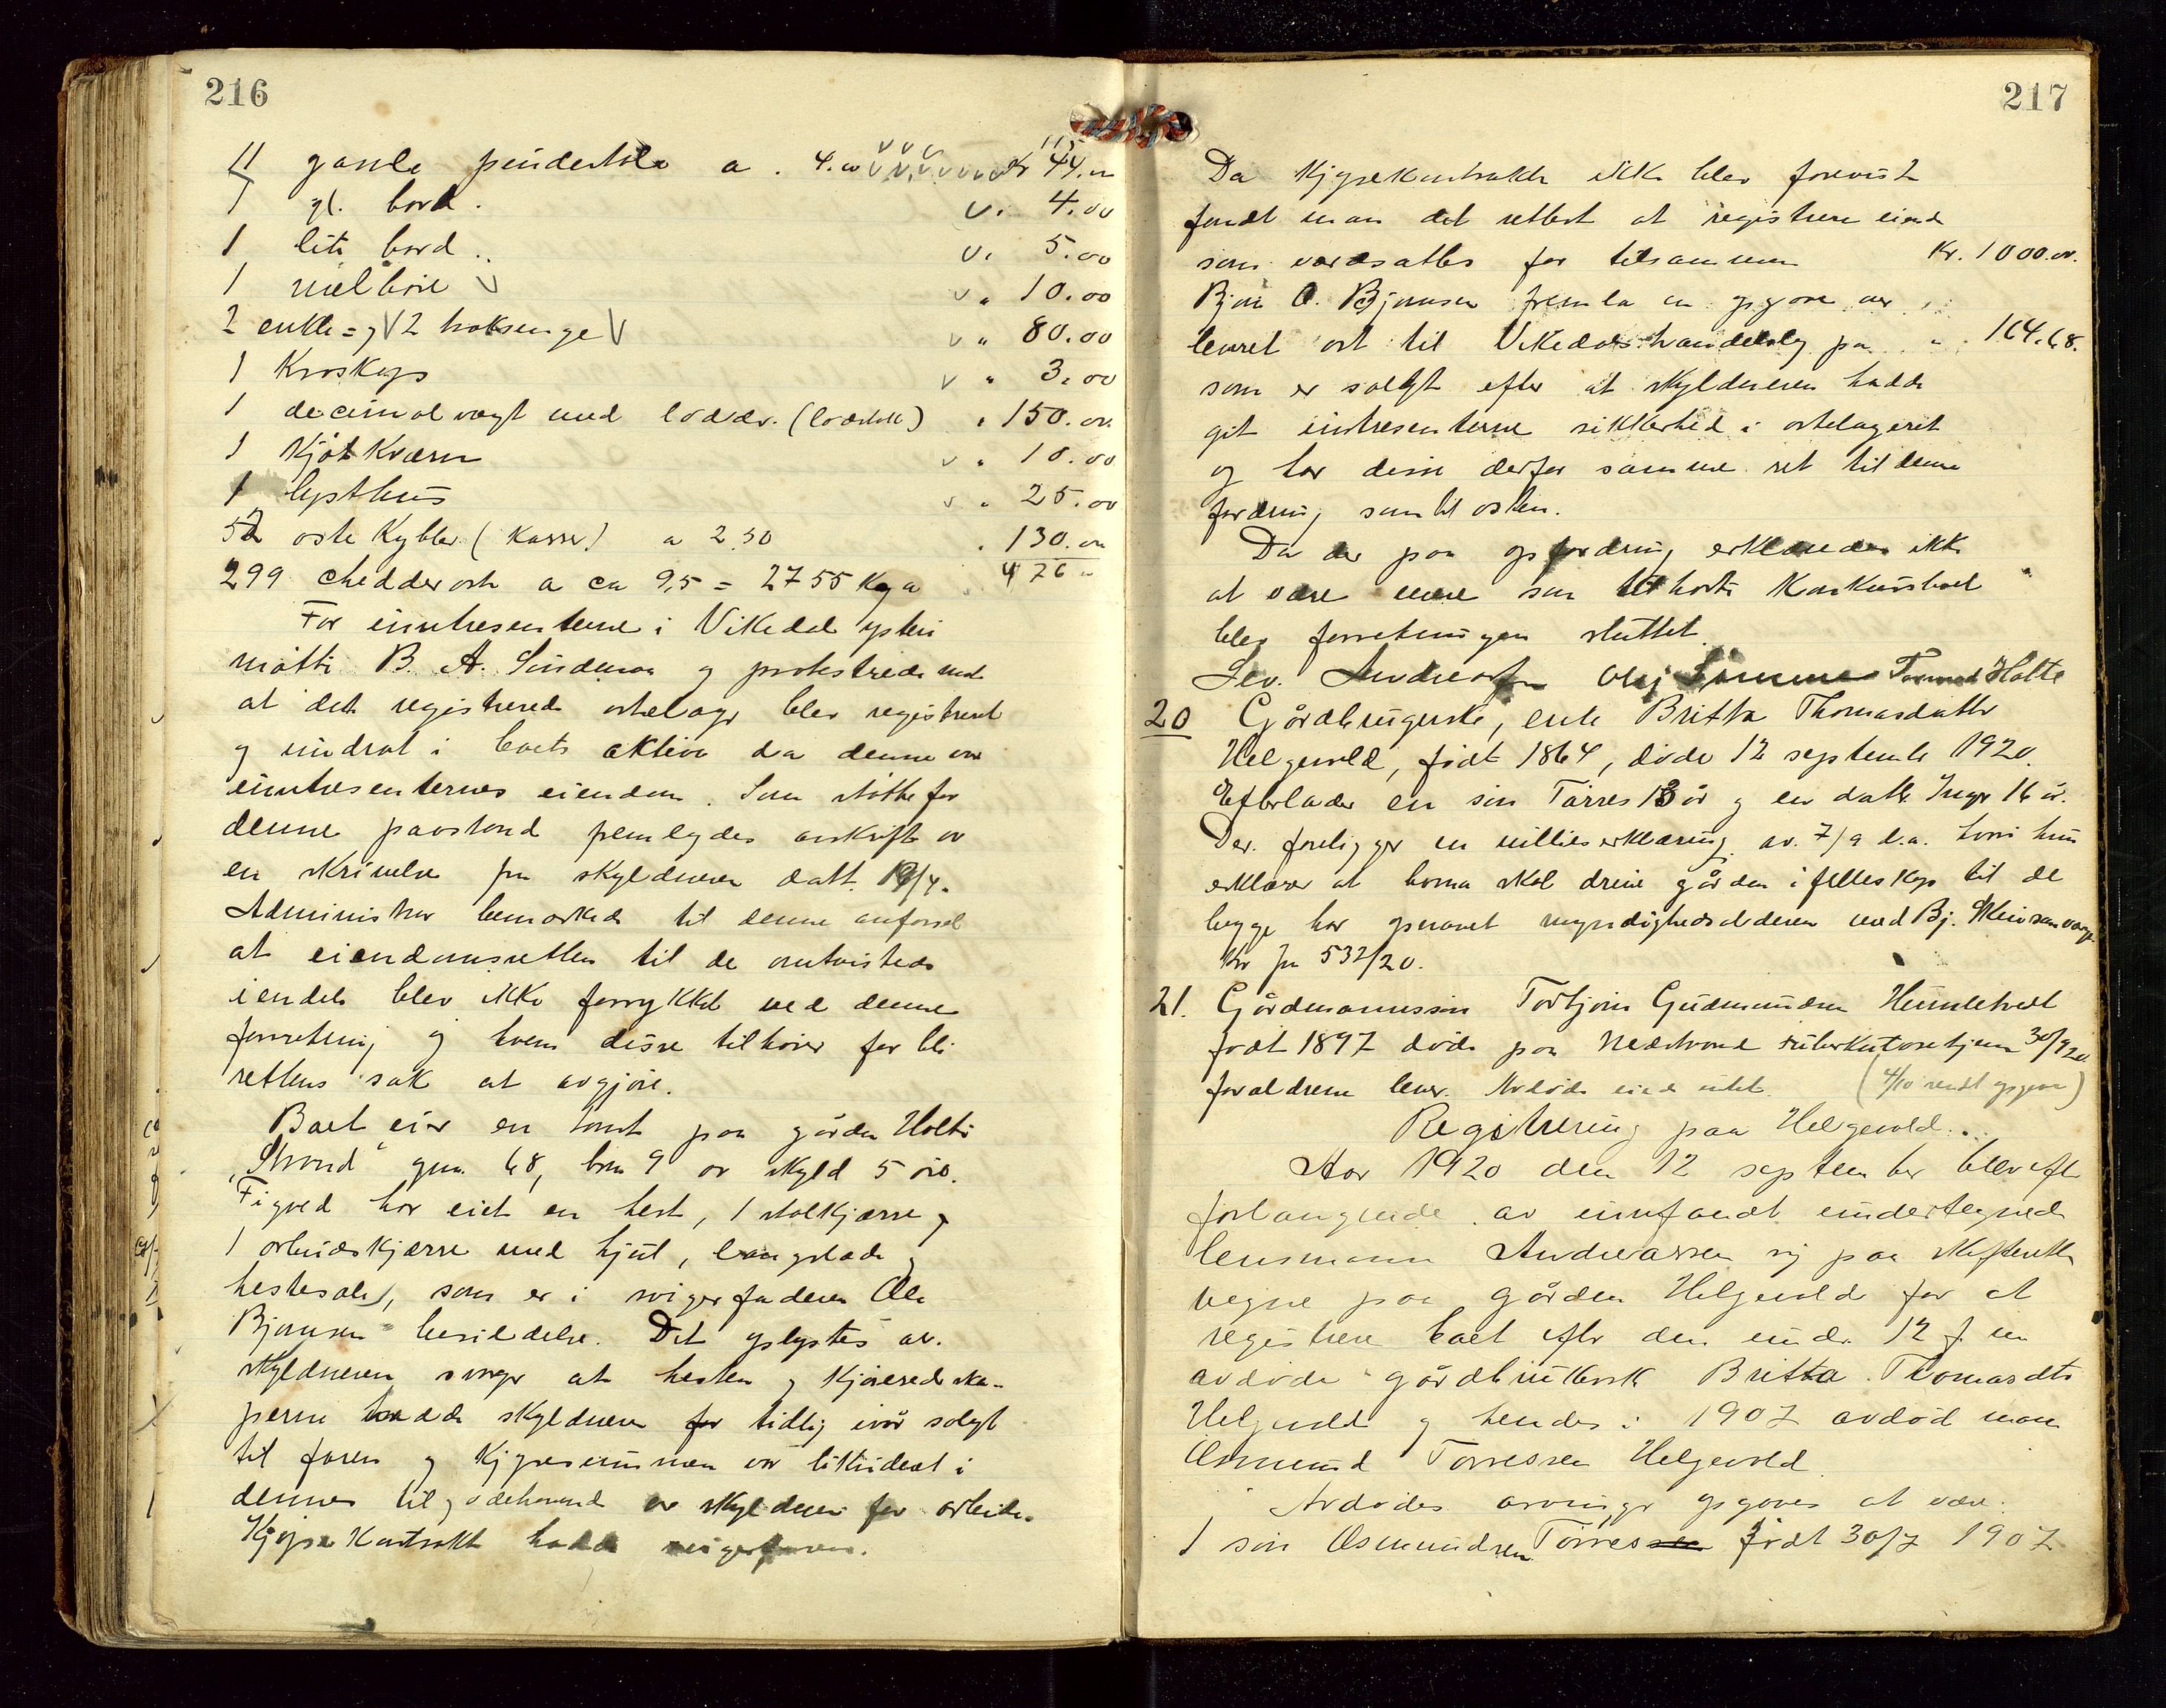 216
11 gamle pindestole a. 4.00 Kr 44.00
1 gl. bord. 4.00
1 lite bord.. 5.00
1 melbøie " 10.00
2 enkle = og 2 traksenge " 80.00
1 Kroskap " 3.00
1 decimalvægt med lodder. (lodstok) " 150.00
1 Kjøtkværn " 10.00
1 lysthus " 25.00
52 oste Kybler (Kasser) a 2.50 " 130.00
299 chedderost a ca 9,5 = 2755 Kg a 476
For interesenterne i Vikedal ysteri
møtte B. A. Sindemoa og protesterede mot
at det registrerede ostelager blev registreret
og inndrat i boets aktiva da denne var
interesenternes eiendom. Som støtte for
denne paastand fremlagdes avskrift av
en skrivelse fra skyldneren datt. 19/4.
Administrer bemerkede til denne anførsel
at eiendomsretten til de omtvistede
iendele blev ikke forrykket ved denne
forretning og hvem disse tilhører før bli
rettens sak at avgjøre.
Boet eier en tomt paa gården Holte
"Strand" gnr. 68, bnr 9 av skyld 5 øre.
Figved har eiet en hest, 1 stolkjærre og
1 arbeidskjærre med hjul, langslade og
hestesale, som er i svigerfaderen Ole
Bjørnsen besiddelse. Det oplystes av
skyldneren svoger at hesten og Kjøreredska-
perne hadde skyldneren for tidlig ivår solgt
til faren og Kjøpesummen var likvidert i
dennes tilgodehavende av skyldneren for arbeide.
Kjøpe Kontrakt hadde svigerfaren.
217
Da Kjøpekontrakten ikke blev forevist
fandt man det rettest at registrere eiend
som værdsattes for tilsammen Kr. 1000.00.
Bjørn O. Bjørnsen fremla en opgave over
leveret ost til Vikedals handelslag paa " 164.68.
som er solgt efter at skyldneren hadde
git interesenterne sikkerhed i ostelageret
og har disse derfor samme ret til denne
fordring som til osten.
Da der paa opfordring erklæredes ikke
at være mere som tilhørte Konkursboet
blev forretningen sluttet.
Sev. Andreassen Olaj Sømme Tormod Holte
20 Gårdbrugerske, enke Britta Thomasdatter
Helgevold, født 1864, døde 12 september 1920.
Efterlader en søn Tørres 13 år og en datter Inger 16 år.
Der foreligger en villieserklæring av 7/9 d.a. hvori hun
erklærer at barna skal drive gården i fælleskap til de
begge har opnaaet myndighedsalderen med Bj. som verge
Kr jr 532/20.
21. Gårdmannssøn Torbjørn Gudmundsen Hunletvedt
født 1897 døde paa Nedstrand tuberkulosehjem 30/9 20
forældrene lever. Avdøde eiede intet. (4/10 sendt opgave)
Registrering paa Helgevold...
Aar 1920 den 12 september blev efter
forlangende av innfandt undertegnede
lensmann Andreassen sig paa skifterettens
vegne paa gården Helgevold for at
registrere boet efter den under 12 f. m
avdøde gårdbrukersk Britta Thomasdtr
Helgevold og hendes i 1907 avdød man
Osmund Tørressen Helgevold.
Avdødes arvinger opgaves at være.
1 søn Osmundsen Tørres født 30/7 1907